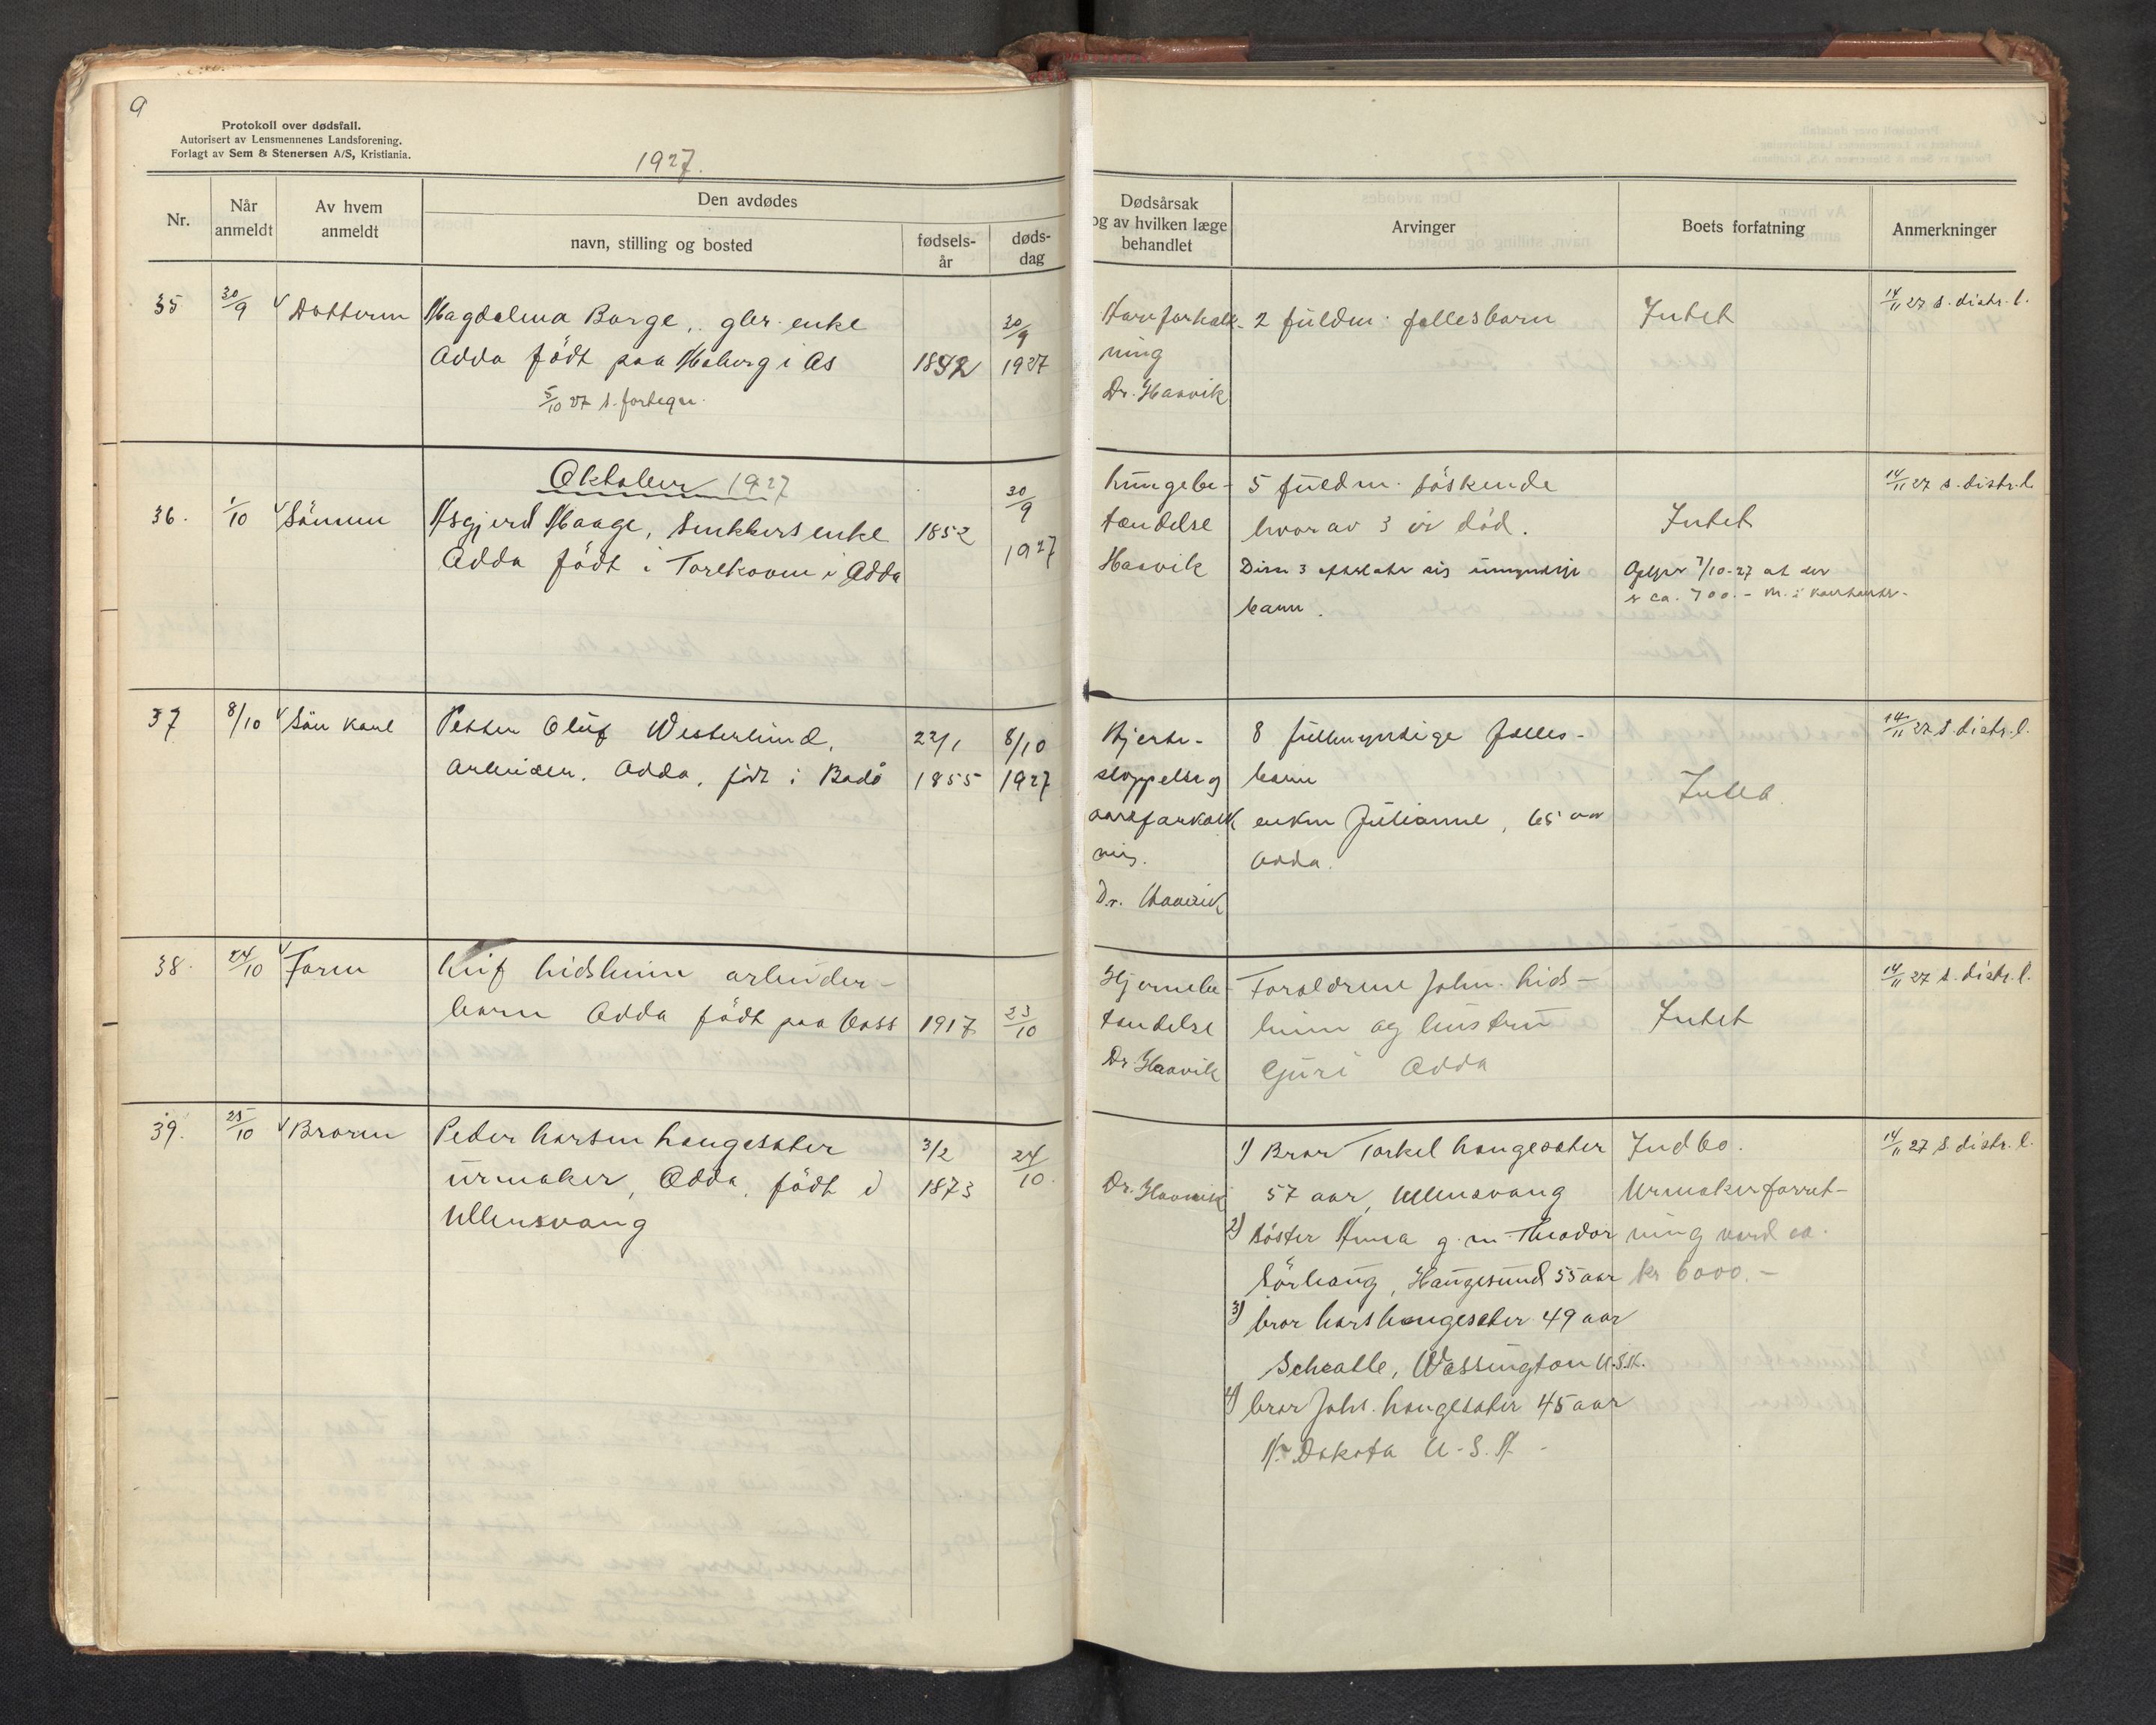 9
Protokoll over dødsfall.
Autorisert av Lensmennenes Landsforening.
Forlagt av Sem & Stenersen A/S, Kristiania.
1927.
Nr.
Når anmeldt
Av hvem anmeldt
Den avdødes
navn, stilling og bosted
fødsels-år
døds-dag
Dødsårsak og av hvilken læge behandlet
Arvinger
Boets forfatning
Anmerkninger
35 30/9 Dotteren Magdalena Borge, gbr. enke
Odda födt paa Moberg i Os 1892 30/9 1927
5/10 27 s. fortegn.
Aareforkalk-
ning
Dr. Haavik
2 fuldm. fellesbarn
Intet
14/11 27 s. distr. l.
Oktober 1927
36. 1/10 Sönnen Asgjerd Maage, enke
Odda födt i i Odda 1852 30/9 1927
Lungebe-
tændelse
Haavik
5 fuldm. söskende
hvorav 3 er död.
Disse 3 efterlater sig umyndige
barn.
Intet
Oplyst 7/10-27 at der
er ca. 700.- kr. i kontanter.
14/11 27 s. distr. l.
37 8/10 Sön Karl Petter Oluf Westerlund,
arbeider. Odda, född i Bodö 22/1 1855 8/10 1927
Hjerte-
slag og
aareforkalk
ning.
Dr. Haavik
8 fullmyndige felles-
barn
enken Julianne, 65 aar
Odda.
Intet
14/11 27 s. distr. l.
38. 24/10 Faren Leif Lidsheim arbeider-
barn Odda födt paa Voss 1917 23/10
Hjernebe-
tendelse
Dr. Haavik
Foreldrene John Lids-
heim og hustru
Guri Odda
Intet
14/11 27 s. distr. l.
39. 25/10 Broren Peder Larsen Langesæter
urmaker, Odda, födt i
Ullensvang
3/2 1873 24/10.
Dr. Haavik
1) Bror Torkel Langesæter
57 aar, Ullensvang
2) Söster Anna g. m. Theodor
Sörhaug, Haugesund 55 aar
3) bror Lars Langesæter 49 aar
Scheatle, Wassington U.S.A.
4) bror Johs. Langesæter 45 aar
N. Dakota U.S.A.
Indbo.
Urmakerforret-
ning verd ca.
kr. 6000.-
14/11 27 s. distr. l.